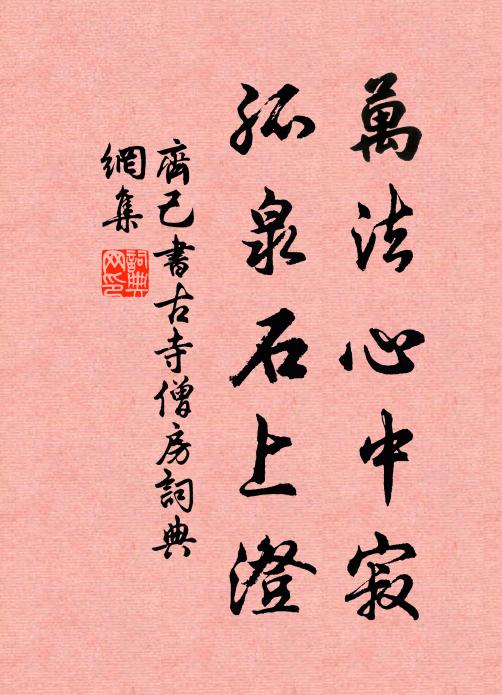 萬法心中寂
孤泉石上澄
齊己書古寺僧房詞典
網集
詞典
网印